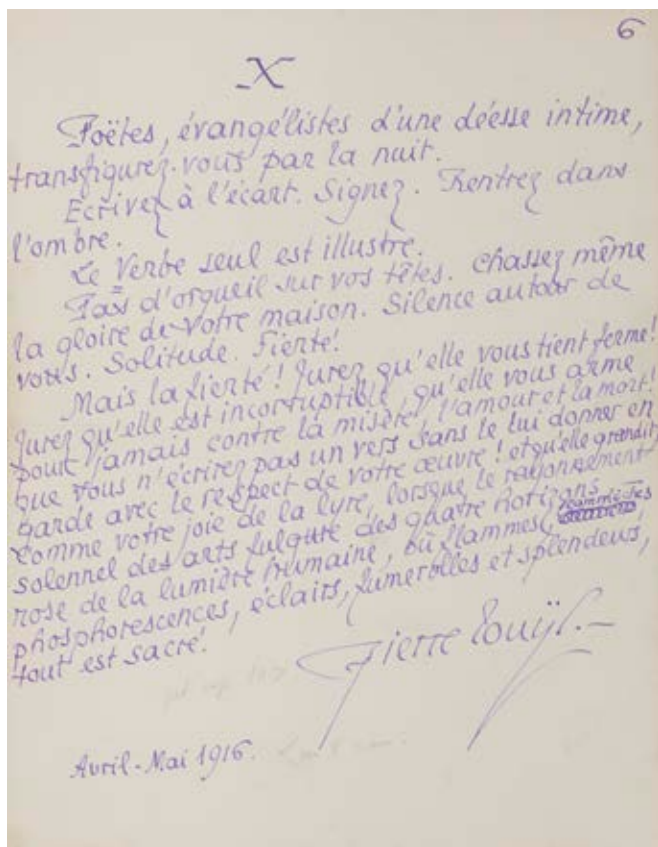 6
X
Poëtes, évangélistes d'une déesse intime,
transfigurez-vous par la nuit.
Ecrivez à l'écart. Signez. Rentrez dans
l'ombre.
Le Verbe seul est illustre.
Pas d'orgueil sur vos têtes. Chassez même
la gloire de votre maison. Silence autour de
vous. Solitude. Fierté!
Mais la fierté! Jurez qu'elle vous tient ferme!
Jurez qu'elle est incorruptible, qu'elle vous arme
pour jamais contre la misère, l'amour et la mort!
que vous n'écrirez pas un vers sans le lui donner en
garde avec le respect de votre œuvre! et qu'elle grandit
comme votre joie de la lyre, lorsque le rayonnement
solennel des arts fulgure des quatre horizons
rose de la lumière humaine, où flammes,
phosphorescences, éclairs, fumerolles et splendeurs,
tout est sacré!
Pierre Louÿs.—
Avril-Mai 1916.